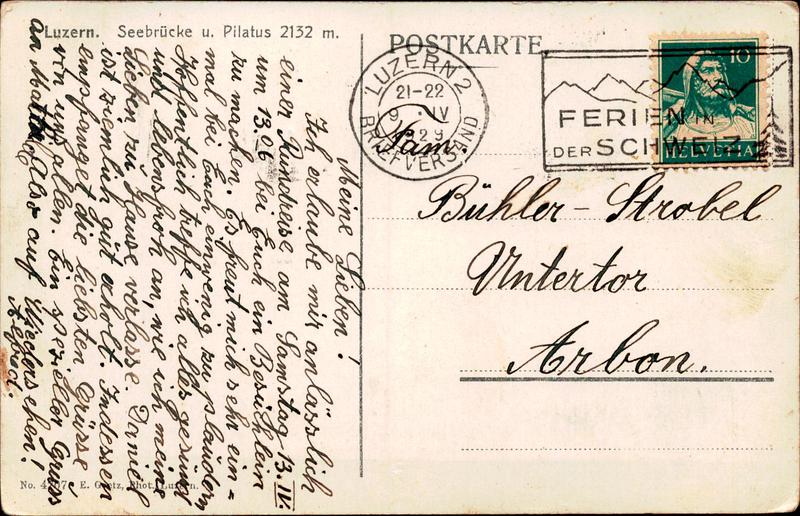 Luzern. Seebrücke u. Pilatus 2132 m.
Meine Lieben!
Ich erlaube mir anlässlich
einer Rundreise am Samstag 13. IV.
um 13.06 bei Euch ein Besüchlein
zu machen. Es freut mich sehr ein=
mal bei Euch ein wenig zu plaudern
Hoffentlich treffe ich alles gesund
und lebensfroh an, wie ich meine
Lieben zu Hause verlasse. Daniel
ist ziemlich gut erholt. Indessen
empfanget die liebsten Grüsse
von uns allen. Ein spezieller Gruss
an Also auf Wiedersehen!
Alfred.
No. E. Goetz, Phot., Luzern.
POSTKARTE
LUZERN 2
21-22
9 IV
29
BRIEFVERSAND
FERIEN IN
DER SCHWEIZ
10
HELVETIA
Fam.
Bühler-Strobel
Untertor
Arbon.